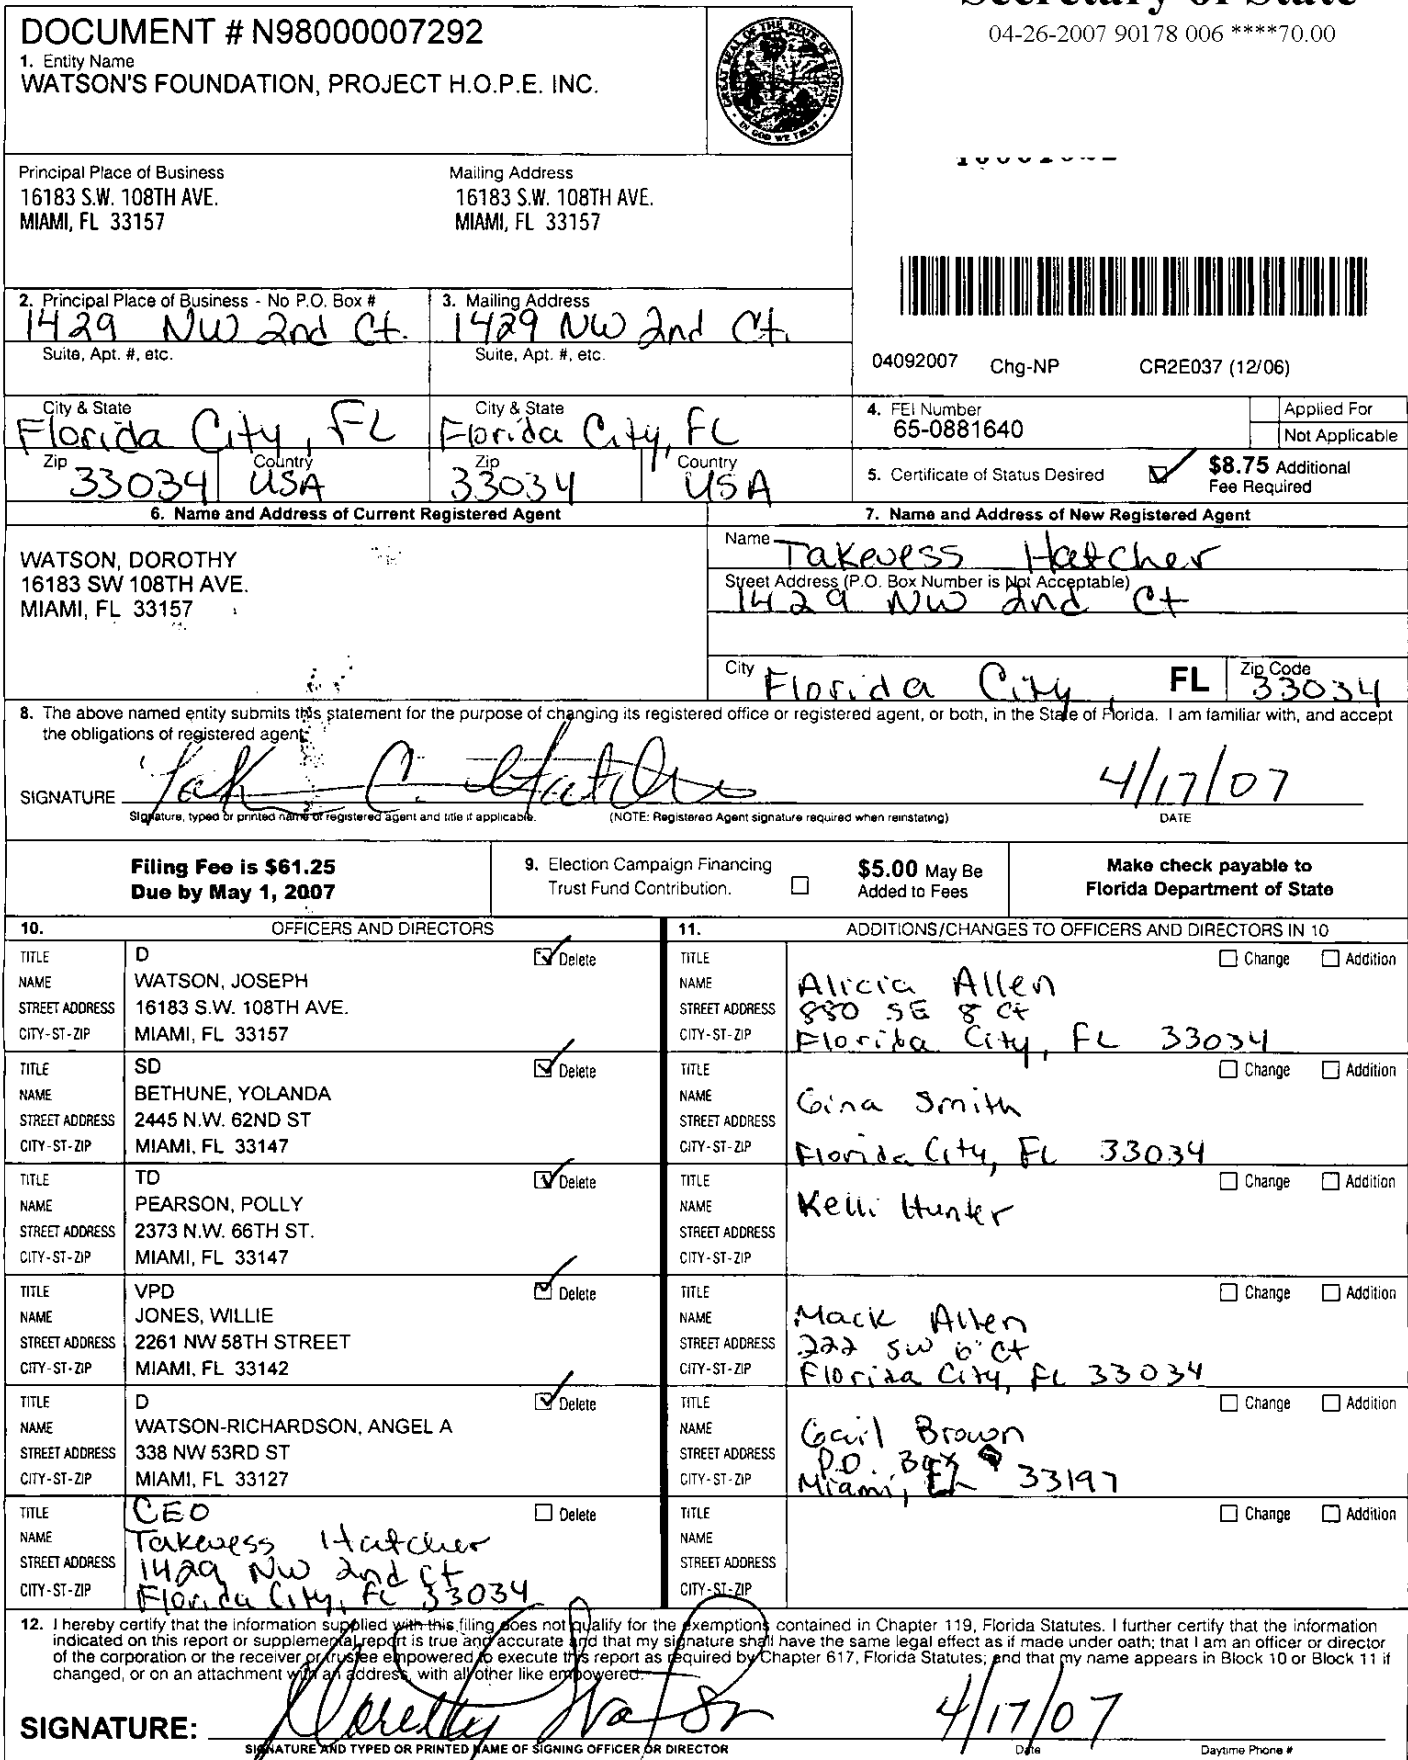 Secretary of State
04-26-2007 90178 006 ****70.00
DOCUMENT # N98000007292
1. Entity Name
WATSON'S FOUNDATION, PROJECT H.O.P.E. INC.
GREAT SEAL OF THE STATE OF FLORIDA
IN GOD WE TRUST
Principal Place of Business
16183 S.W. 108TH AVE.
MIAMI, FL 33157
Mailing Address
16183 S.W. 108TH AVE.
MIAMI, FL 33157
2. Principal Place of Business - No P.O. Box #
1429 NW 2nd Ct.
3. Mailing Address
1429 NW 2nd Ct.
Suite, Apt. #, etc.
Suite, Apt. #, etc.
04092007 Chg-NP CR2E037 (12/06)
City & State
Florida City, FL
City & State
Florida City, FL
Zip
33034
Country
USA
Zip
33034
Country
USA
4. FEI Number
65-0881640
Applied For
Not Applicable
5. Certificate of Status Desired
$8.75 Additional
Fee Required
6. Name and Address of Current Registered Agent
WATSON, DOROTHY
16183 SW 108TH AVE.
MIAMI, FL 33157
7. Name and Address of New Registered Agent
Name
Takevess Hatcher
Street Address (P.O. Box Number is Not Acceptable)
1429 NW 2nd Ct
City
Florida City, FL
Zip Code
33034
8. The above named entity submits this statement for the purpose of changing its registered office or registered agent, or both, in the State of Florida. I am familiar with, and accept
the obligations of registered agent.
SIGNATURE
C. Hatcher
4/17/07
Signature, typed or printed name of registered agent and title if applicable. (NOTE: Registered Agent signature required when reinstating) DATE
Filing Fee is $61.25
Due by May 1, 2007
9. Election Campaign Financing
Trust Fund Contribution.
$5.00 May Be
Added to Fees
Make check payable to
Florida Department of State
10. OFFICERS AND DIRECTORS
TITLE D Delete
NAME WATSON, JOSEPH
STREET ADDRESS 16183 S.W. 108TH AVE.
CITY-ST-ZIP MIAMI, FL 33157
TITLE SD Delete
NAME BETHUNE, YOLANDA
STREET ADDRESS 2445 N.W. 62ND ST
CITY-ST-ZIP MIAMI, FL 33147
TITLE TD Delete
NAME PEARSON, POLLY
STREET ADDRESS 2373 N.W. 66TH ST.
CITY-ST-ZIP MIAMI, FL 33147
TITLE VPD Delete
NAME JONES, WILLIE
STREET ADDRESS 2261 NW 58TH STREET
CITY-ST-ZIP MIAMI, FL 33142
TITLE D Delete
NAME WATSON-RICHARDSON, ANGEL A
STREET ADDRESS 338 NW 53RD ST
CITY-ST-ZIP MIAMI, FL 33127
TITLE CEO Delete
NAME Takevess Hatcher
STREET ADDRESS 1429 NW 2nd Ct
CITY-ST-ZIP Florida City, FL 33034
11. ADDITIONS/CHANGES TO OFFICERS AND DIRECTORS IN 10
TITLE Change Addition
NAME Alicia Allen
STREET ADDRESS 880 SE 8 Ct
CITY-ST-ZIP Florida City, FL 33034
TITLE Change Addition
NAME Gina Smith
STREET ADDRESS
CITY-ST-ZIP Florida City, FL 33034
TITLE Change Addition
NAME Kelli Hunter
STREET ADDRESS
CITY-ST-ZIP
TITLE Change Addition
NAME Mack Allen
STREET ADDRESS 222 SW 6 Ct
CITY-ST-ZIP Florida City, FL 33034
TITLE Change Addition
NAME Gail Brown
STREET ADDRESS P.O. Box
CITY-ST-ZIP Miami, FL 33197
TITLE Change Addition
NAME
STREET ADDRESS
CITY-ST-ZIP
12. I hereby certify that the information supplied with this filing does not qualify for the exemptions contained in Chapter 119, Florida Statutes. I further certify that the information
indicated on this report or supplemental report is true and accurate and that my signature shall have the same legal effect as if made under oath; that I am an officer or director
of the corporation or the receiver or trustee empowered to execute this report as required by Chapter 617, Florida Statutes; and that my name appears in Block 10 or Block 11 if
changed, or on an attachment with an address, with all other like empowered.
SIGNATURE:
Dorothy Watson
4/17/07
SIGNATURE AND TYPED OR PRINTED NAME OF SIGNING OFFICER OR DIRECTOR Date Daytime Phone #